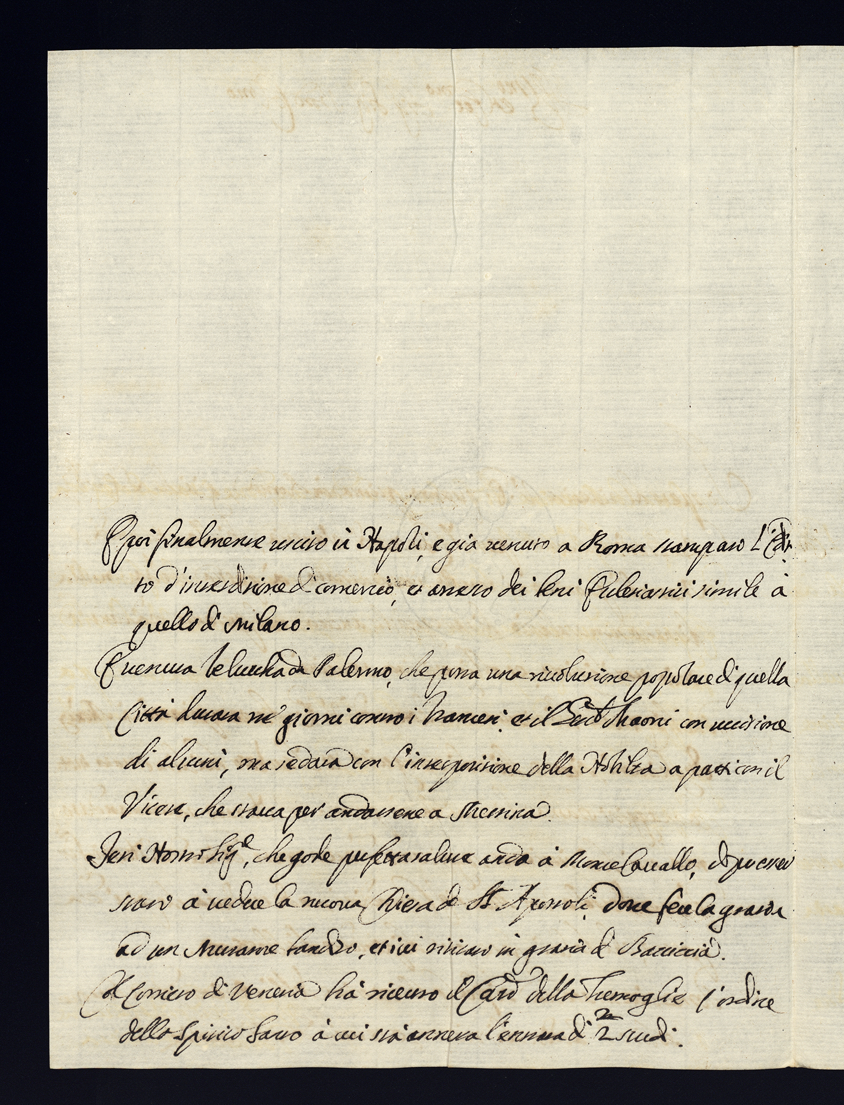 E poi finalmente uscito in Napoli, e gia venuto a Roma stampato l'Edit
to d'interdizione di comercio, et anzero dei beni Eclesiastici simile à
quello di Milano.
E venuta la da Palermo, che porta una rivoluzione popolare di quella
Città durata tre giorni contro i francesi, et il con uccisione
di alcuni, ma sedata con l'interposizione della Nobiltà a patti con il
Vicere, che stava per andarsene a Messina.
Jeri Nostro Sig.re, che gode perfetta salute andò à Monte Cavallo, doppo esser
stato à vedere la nuova Chiesa de S.ti Apostoli, dove fece la grazia
ad un Muratore bandito, et ivi ritirato in grazia di Baciccia.
Col Corriero di Venezia hà ricevuto il Card. della Tremoglie l'ordine
dello Spirito Santo à cui stà annessa l'entrata di 2m scudi.